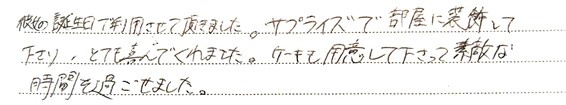 彼女の誕生日で利用させて頂きました。サプライズで部屋に装飾して
下さり、とても喜んでくれました。ケーキも用意して下さって素敵な
時間を過ごせました。